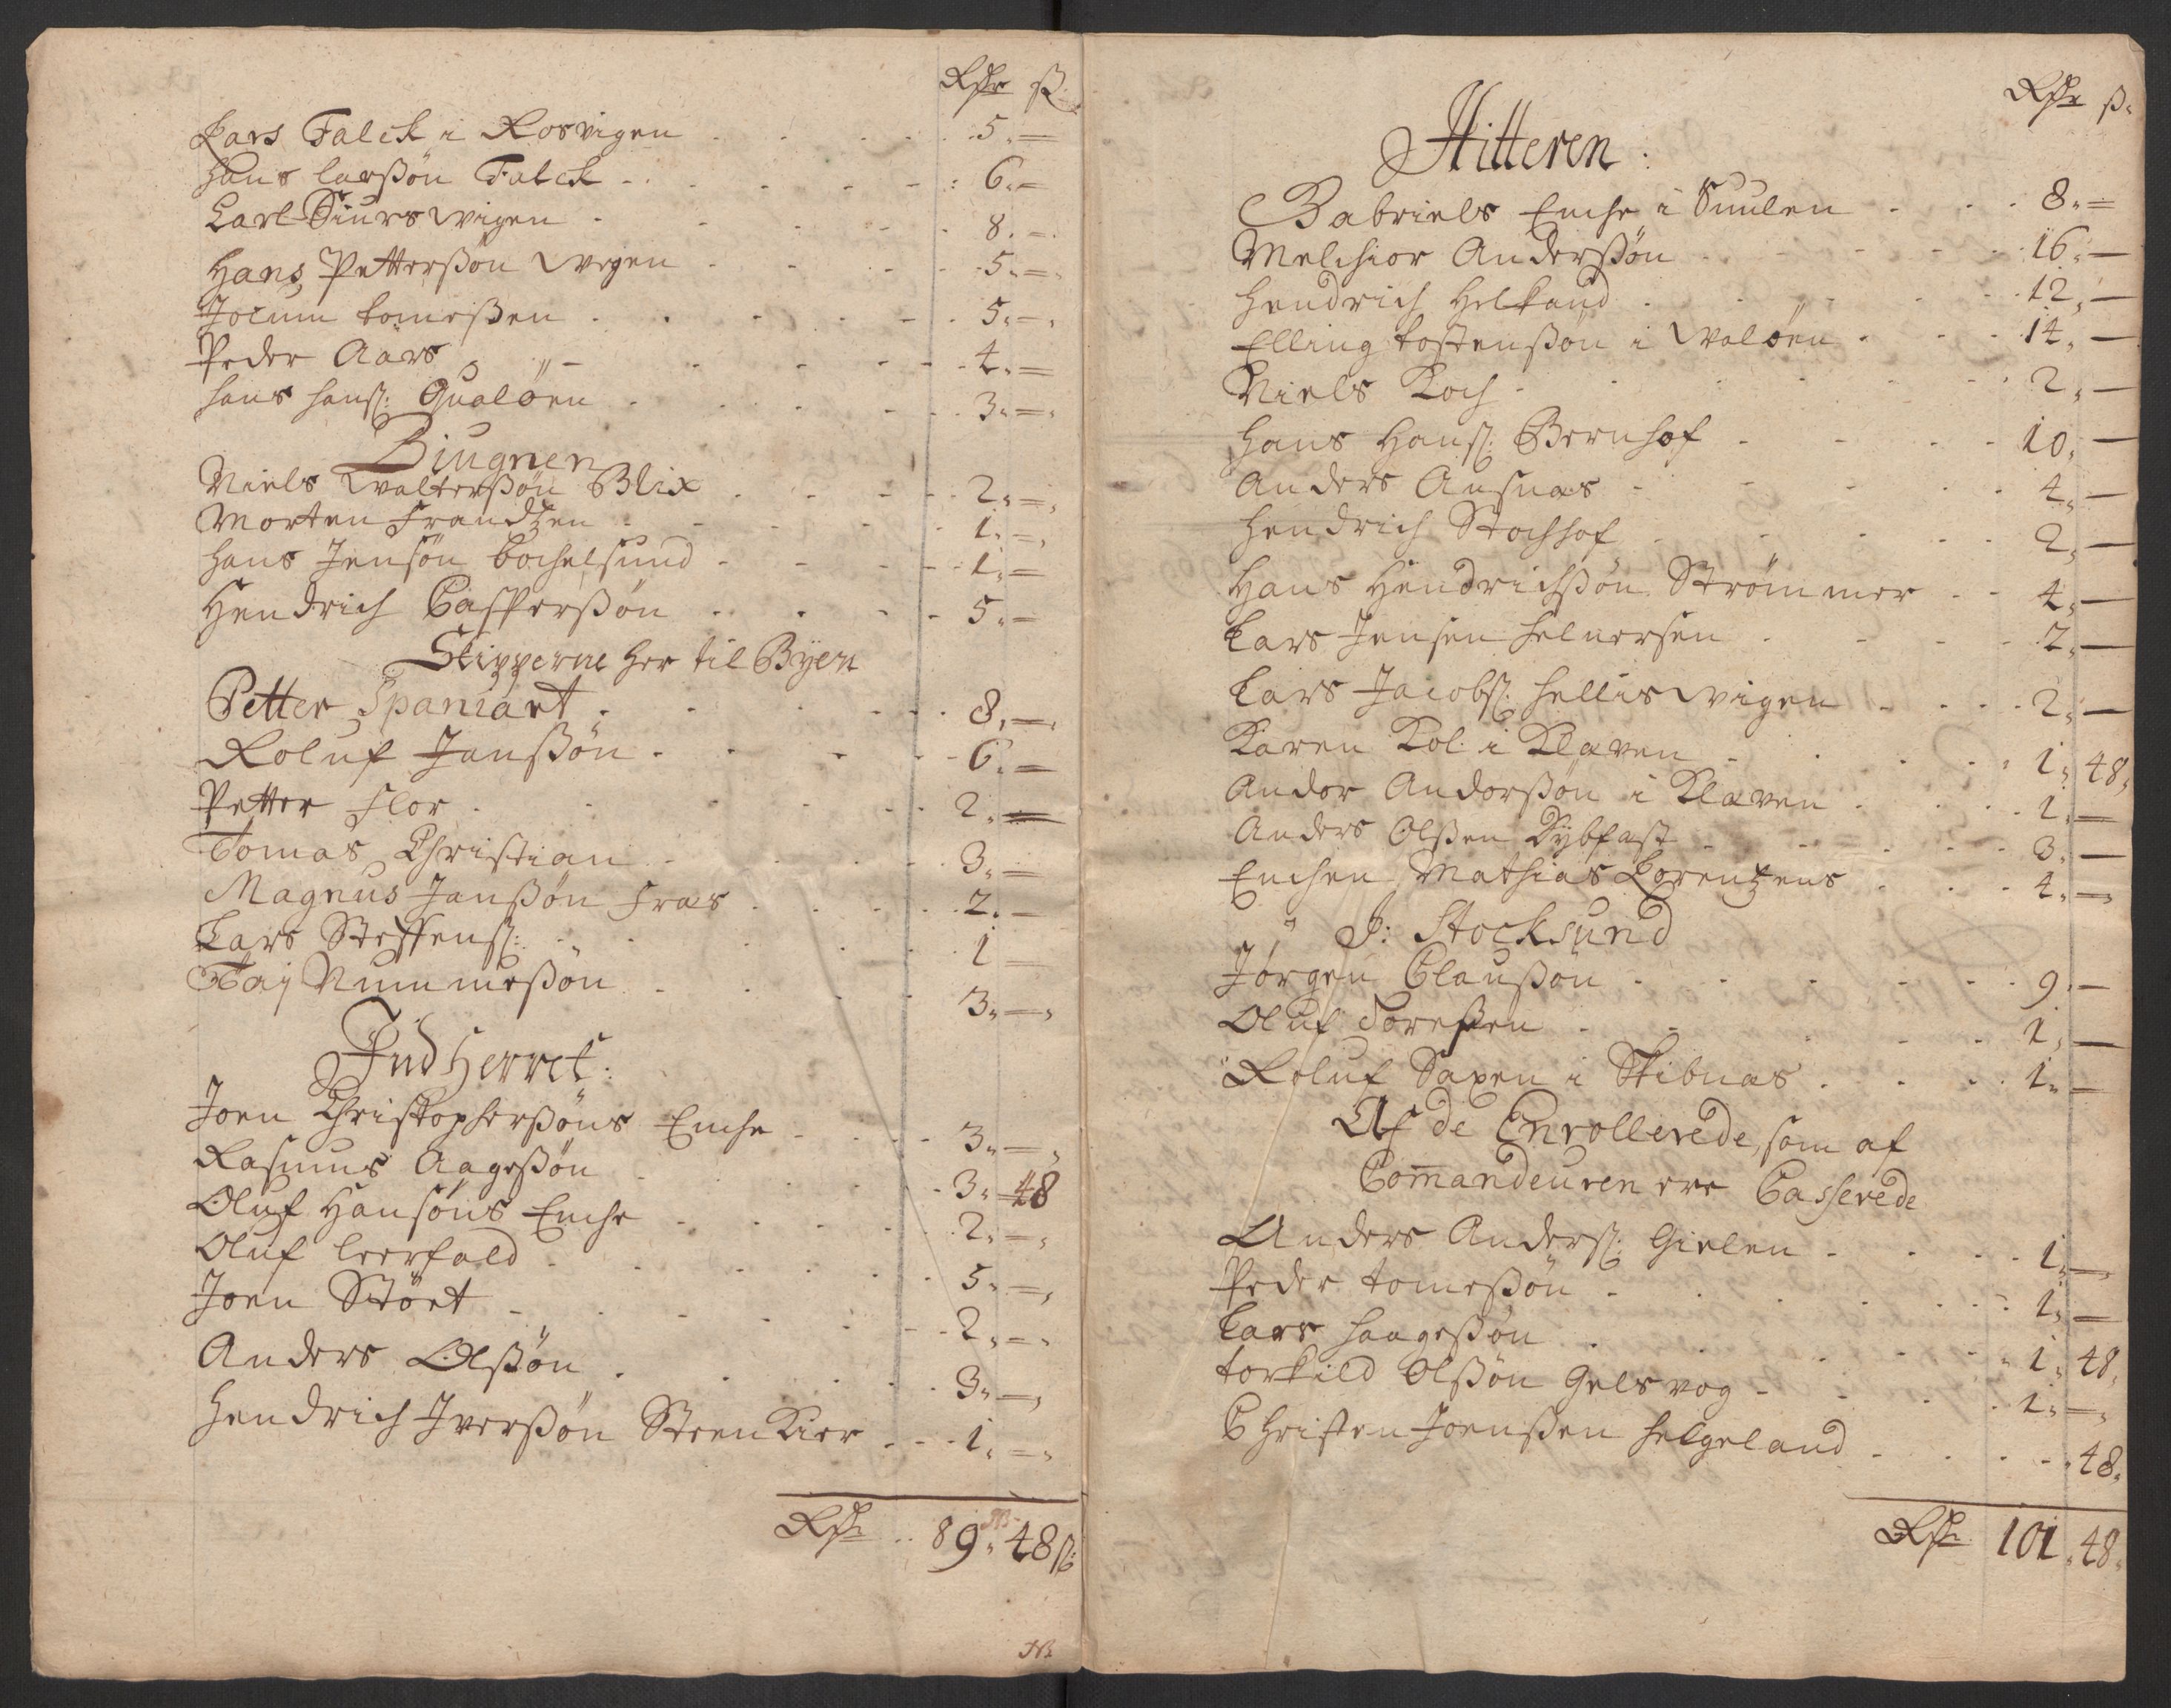 Rdr ß
Lars Falck i Rosvigen 5 =
Hans larßøn Falck 6 =
Carl Siurswigen 8 -
Hans Petterßøn Wigen 5 =
Jocum tomeßen 5 -
Peder Aars 4 =
hans hanß: Qualöen 3 =
Biugnen
Niels Walterßøn Blix 2 =
Morten Frandzen 1 =
hans Jensøn bochelsund 1 =
Hendrich Casperßøn 5 =
Skipperne her til Byen
Petter Spaniart 8 —
Roluf Janßøn 6 =
Petter Flor 2 =
Tomas Christian 3 =
Magnus Janßøn Fræs 2 -
Lars Steffenß: 1 =
Taj Nummeßøn 3 =
Ind Herret:
Joen Christopherßøns Enche 3 —
Rasmus Aageßøn 3 48
Oluf Hansøns Enche 2 =
Oluf leerfald 5 =
Joen Stört 2 =
Anders Olßøn 3 —
Hendrich Iverßøn SteenKier 1 =
Rdr 89 48 ß
NB
Rdr ß
Hitteren:
Gabriels Enche i Suulen 8 =
Melchior Anderßøn 16 —
Hendrich Helkand 12 —
Elling tostenßøn i Waløen 14 —
Niels Koch 2 —
Hans Hanß: Bernhof 10 —
Anders Ausnæs 4 —
Hendrich Stochhof 2 —
Hans Hendrichßøn Strømmer 4 —
Lars Jensen helnersen 2 —
Lars Jacobß: helliswigen 2 —
Karen Kol: i Klaven 1 48
Andor Andorßøn i Klaven 1 —
Anders Olßen Dybfast 3 —
Enchen Mathias Lorentzens 4 =
I: Stocksund
Jørgen Claußøn 9 —
Oluf Toreßen 1 —
Roluf Saxen i Skibnæs 1 —
Af de Enrollerede, som af
Com̄andeuren ere Casserede
Anders Anderß: Gielen 1 —
Peder tomeßøn 1 —
Lars haageßøn 1 48
torkild Olßøn Gelsvog 1 =
Christen Joenßen helgeland 48
Rdr 101 48